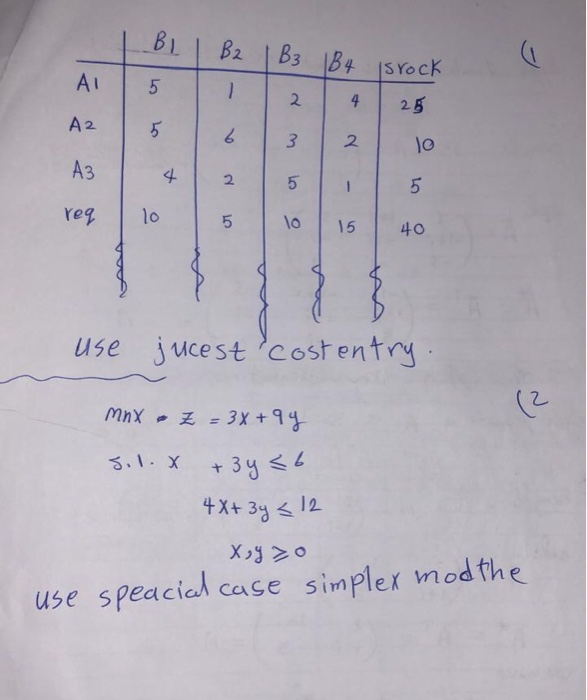 (1
B1 B2 B3 B4 srock
A1 5 1 2 4 25
A2 5 6 3 2 10
A3 4 2 5 1 5
req 10 5 10 15 40
use jucest cost entry.
(2
mnx z = 3x+9y
s.t. x + 3y ≤ 6
4x+3y ≤ 12
x,y ≥ 0
use speacial case simplex modthe